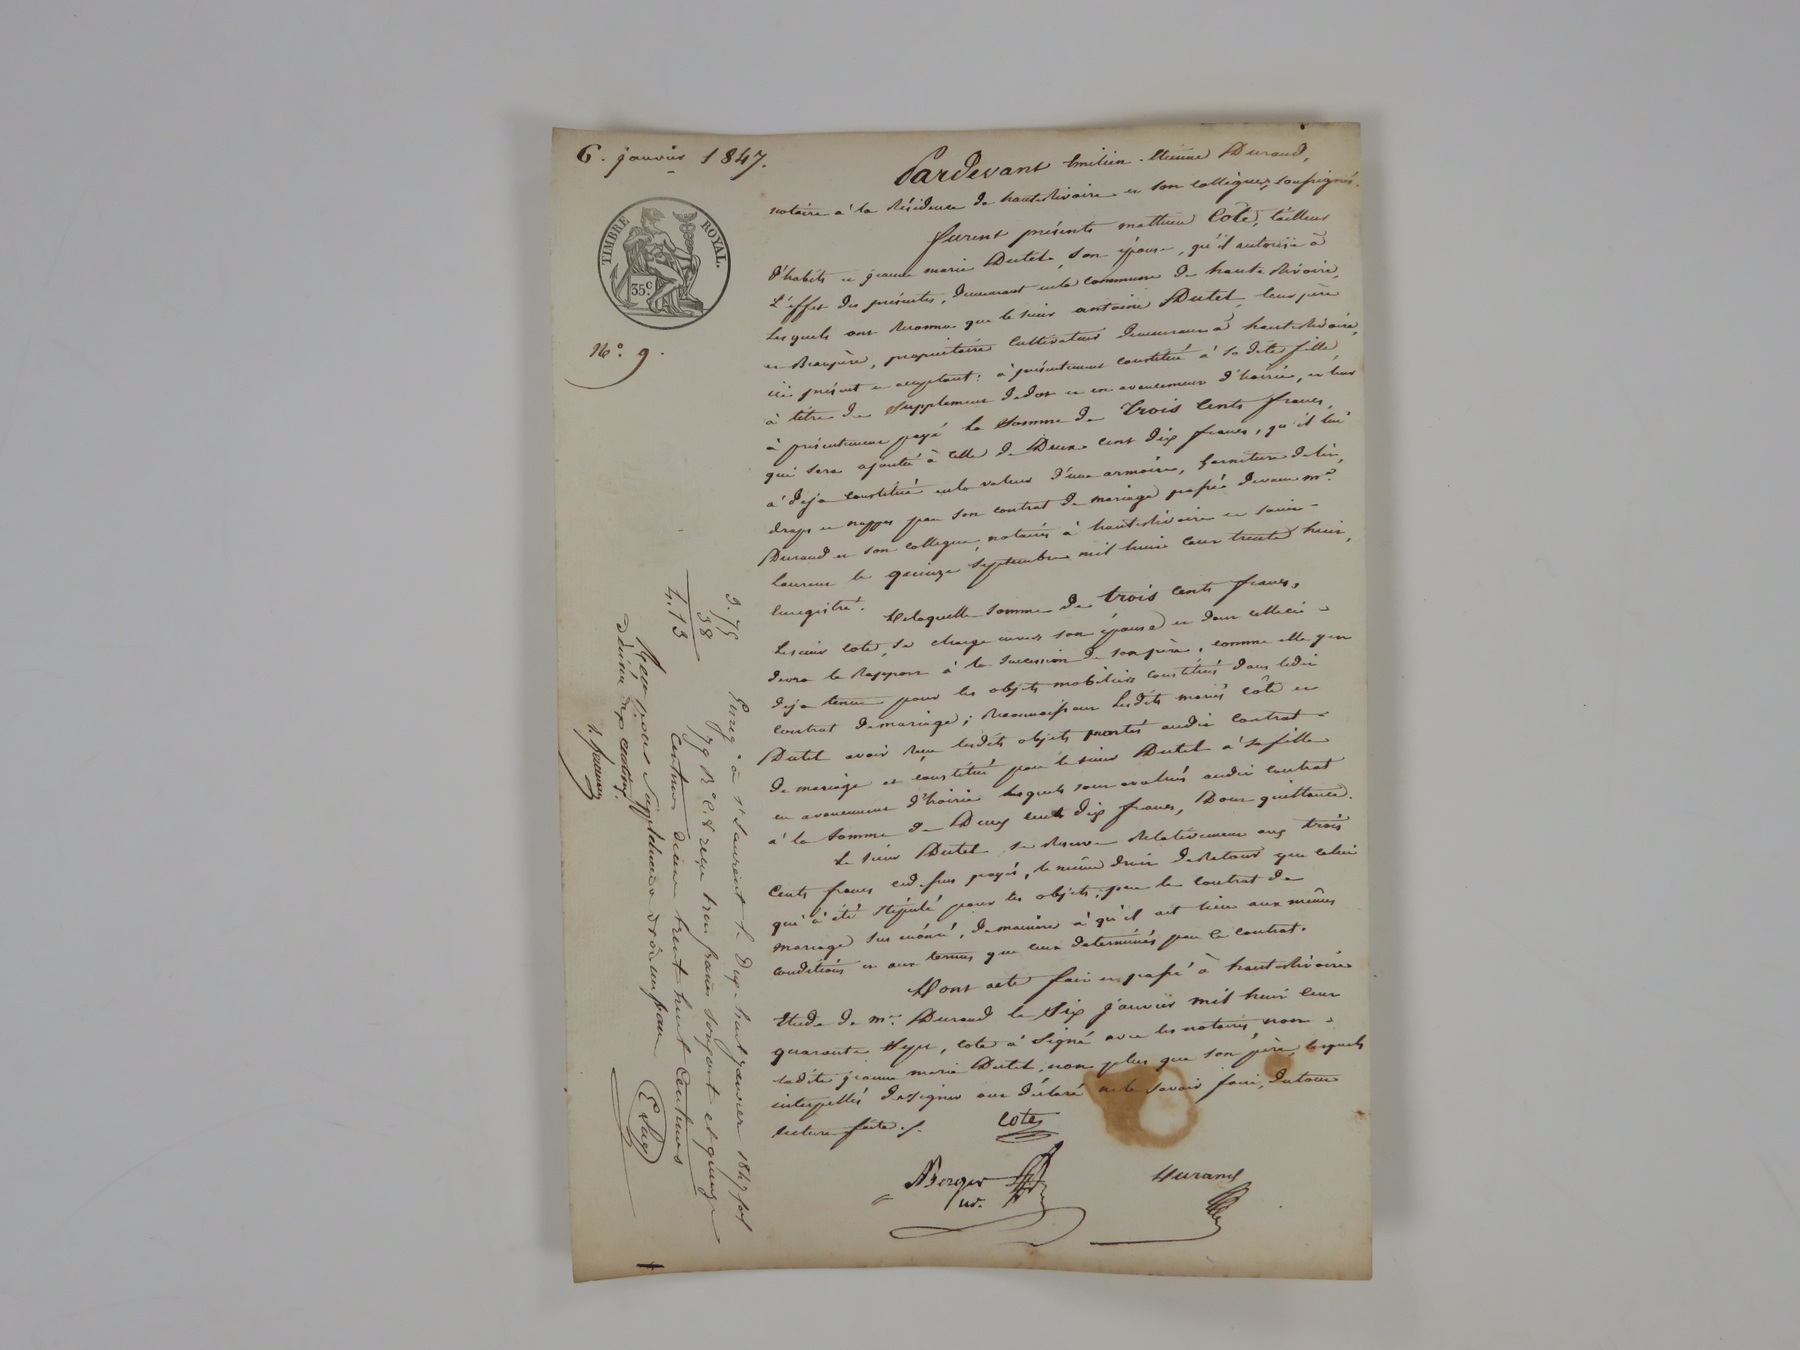 6. janvier 1847.
TIMBRE ROYAL.
35 c.
No. 9.
Pardevant Emilien Etienne Durand,
notaire à la Résidence de hauterivoire et son collègue, soussignés.
furent présents mathieu Cote, tailleur
d'habits et jeanne marie Dutel, son épouse, qu'il autorise à
L'effet des présentes, demeurant en la commune de haute Rivoire,
Lesquels ont Reconnu que le sieur antoine Dutel, leur père
et Beaupère, propriétaire Cultivateur demeurant à hauterivoire,
ici présent et acceptant: à présentement constitué à sa dite fille
à titre de Supplement dedot et en avancement d'hoirie, et leur
à présentement payé La Somme de Trois Cents francs,
qui sera ajoutée à celle de Deux cent dix francs, qu'il lui
à déja constitué en la valeur d'une armoire, Garniture de lit,
draps et nappes par son contrat de mariage passé devant me
Durand et son collegue, notaires à hauterivoire et saint-
Laurent le quinze Septembre mil huit cent trente huit,
Enregistré.
De laquelle somme de trois Cents francs,
Lesieur Cote, se charge envers son épouse et dont celle ci
devra le Rapport à la succession de son père, comme elle y en
déja tenue pour les objets mobiliers constitués dans ledit
contrat demariage; Reconnaissant Lesdits mariés Côte et
Dutel avoir reçu lesdits objets portés audit contrat
de mariage et constitués par le sieur Dutel à sa fille
en avancement d'hoirie Lesquels sont evalués audit contrat
à la Somme de Deux cent dix francs, Dont quittance.
Le sieur Dutel se Reserve Relativement aux trois
Cents francs cidessus payés, le même droit de Retour que celui
qui à été Stipulé pour les objets, par le contrat de
mariage sus énoncé, de manière à qu'il ait lieu aux mêmes
conditions et aux termes que ceux determinés par le contrat.
Dont acte fait et passé à hauterivoire
Etude de me. Durand le Six janvier mil huit cent
quarante Sept, Cote à Signé avec les notaires, non
ladite jeanne marie Dutel, non plus que son père, lesquels
interpellés de signer ont déclaré ne le savoir faire, de tout
lecture faite ./.
Cote
Berger
Durand
3.75
38
4.13
Enreg. à St Laurent le Dix huit janvier 1847 fol
79 Ro C. 8 reçu trois francs soixante et quinze
Centimes dixieme trente huit Centimes
Reçu pour supplément droit un franc
décime dix centimes